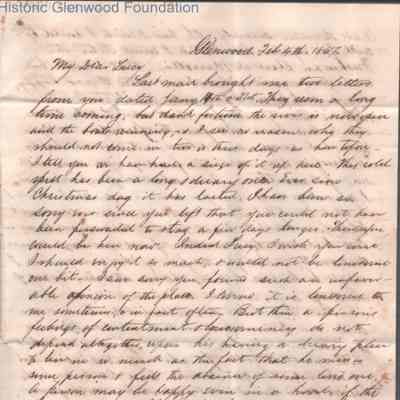 Historic Glenwood Foundation
Glenwood Feb 4th 1857
My Dear Lucy
Last mail brought me two letters
from you dated Jany & 21st. They seem a long
time coming, but thank fortune the river is now open
and the boats running, & I see no reason why they
should not come in two or three days as heretofore.
I tell you we have had a siege of it up here. This cold
spell has been a long & dreary one. Ever since
Christmas day it has lasted. I have been so
sorry ever since you left that you could not have
been persuaded to stay a few days longer. Then you
would be here now. Indeed Lucy I wish you were
I should enjoy it so much, & would not be lonesome
one bit. I am sorry you formed such an unfavor-
able opinion of the place. I know it is lonesome to
me sometimes, & in fact often. But then a persons
feelings of contentment & lonesomeness do not
depend altogether upon his having a dreary place
to live in so much as the fact that he misses
some person & feels the absence of some loved one.
A person may be happy even in a hovel if the